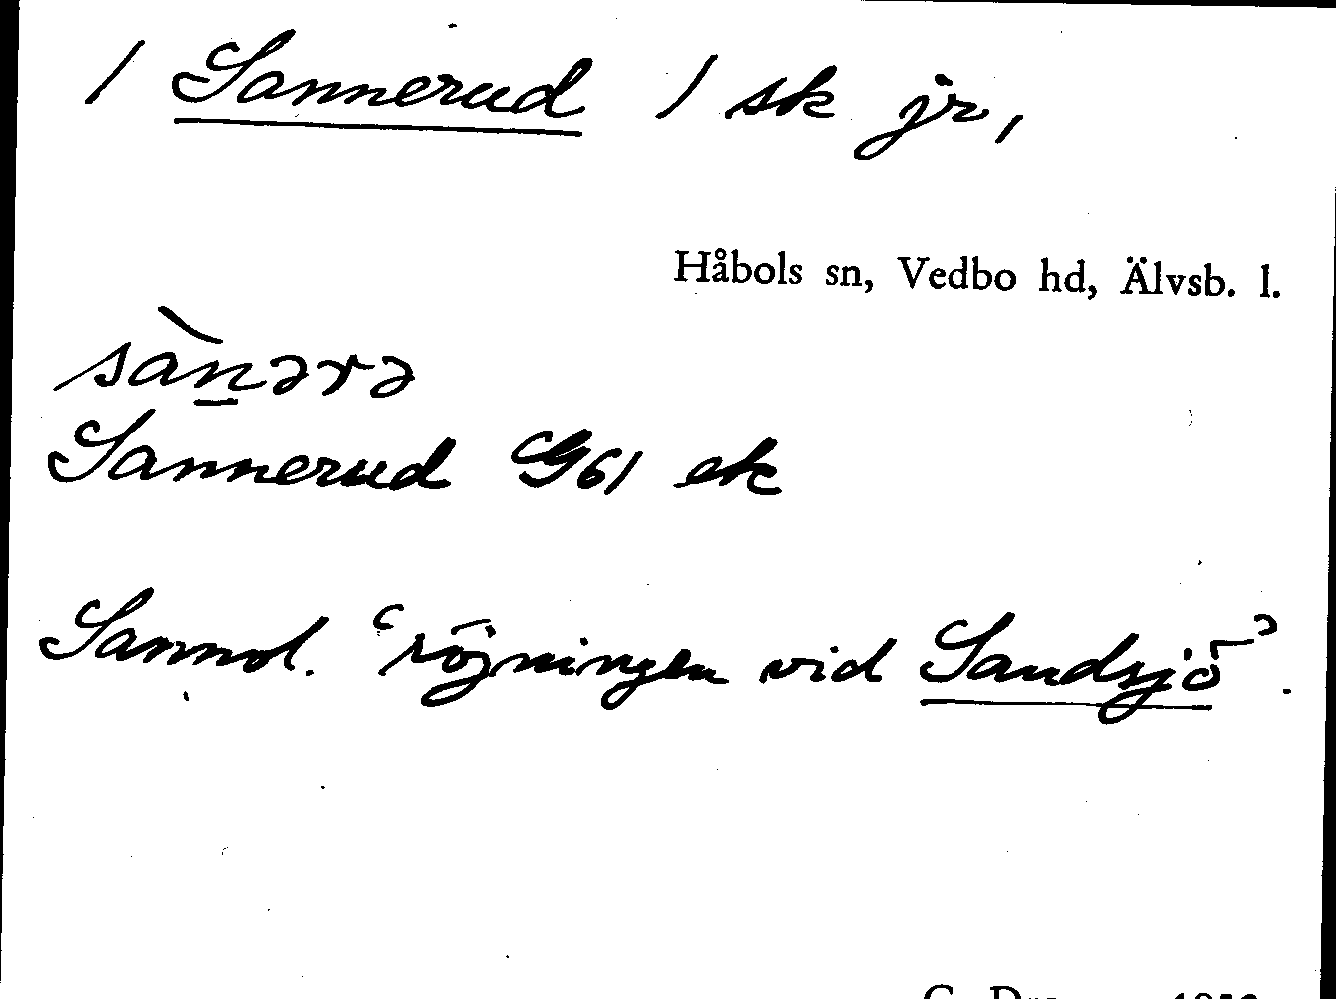 / Sannerud / sk jr,
Håbols sn, Vedbo hd, Älvsb. l.
sànərə
Sannerud G61 ek
Sannol. ‘röjningen vid Sandsjö-’.